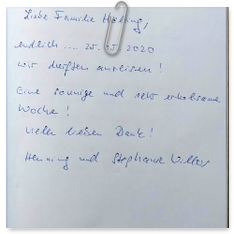 Liebe Familie
endlich .... 25.05 2020
wir durften anreisen!
Eine sonnige und sehr erholsame
Woche!
Vielen lieben Dank!
Henning und Stephanie